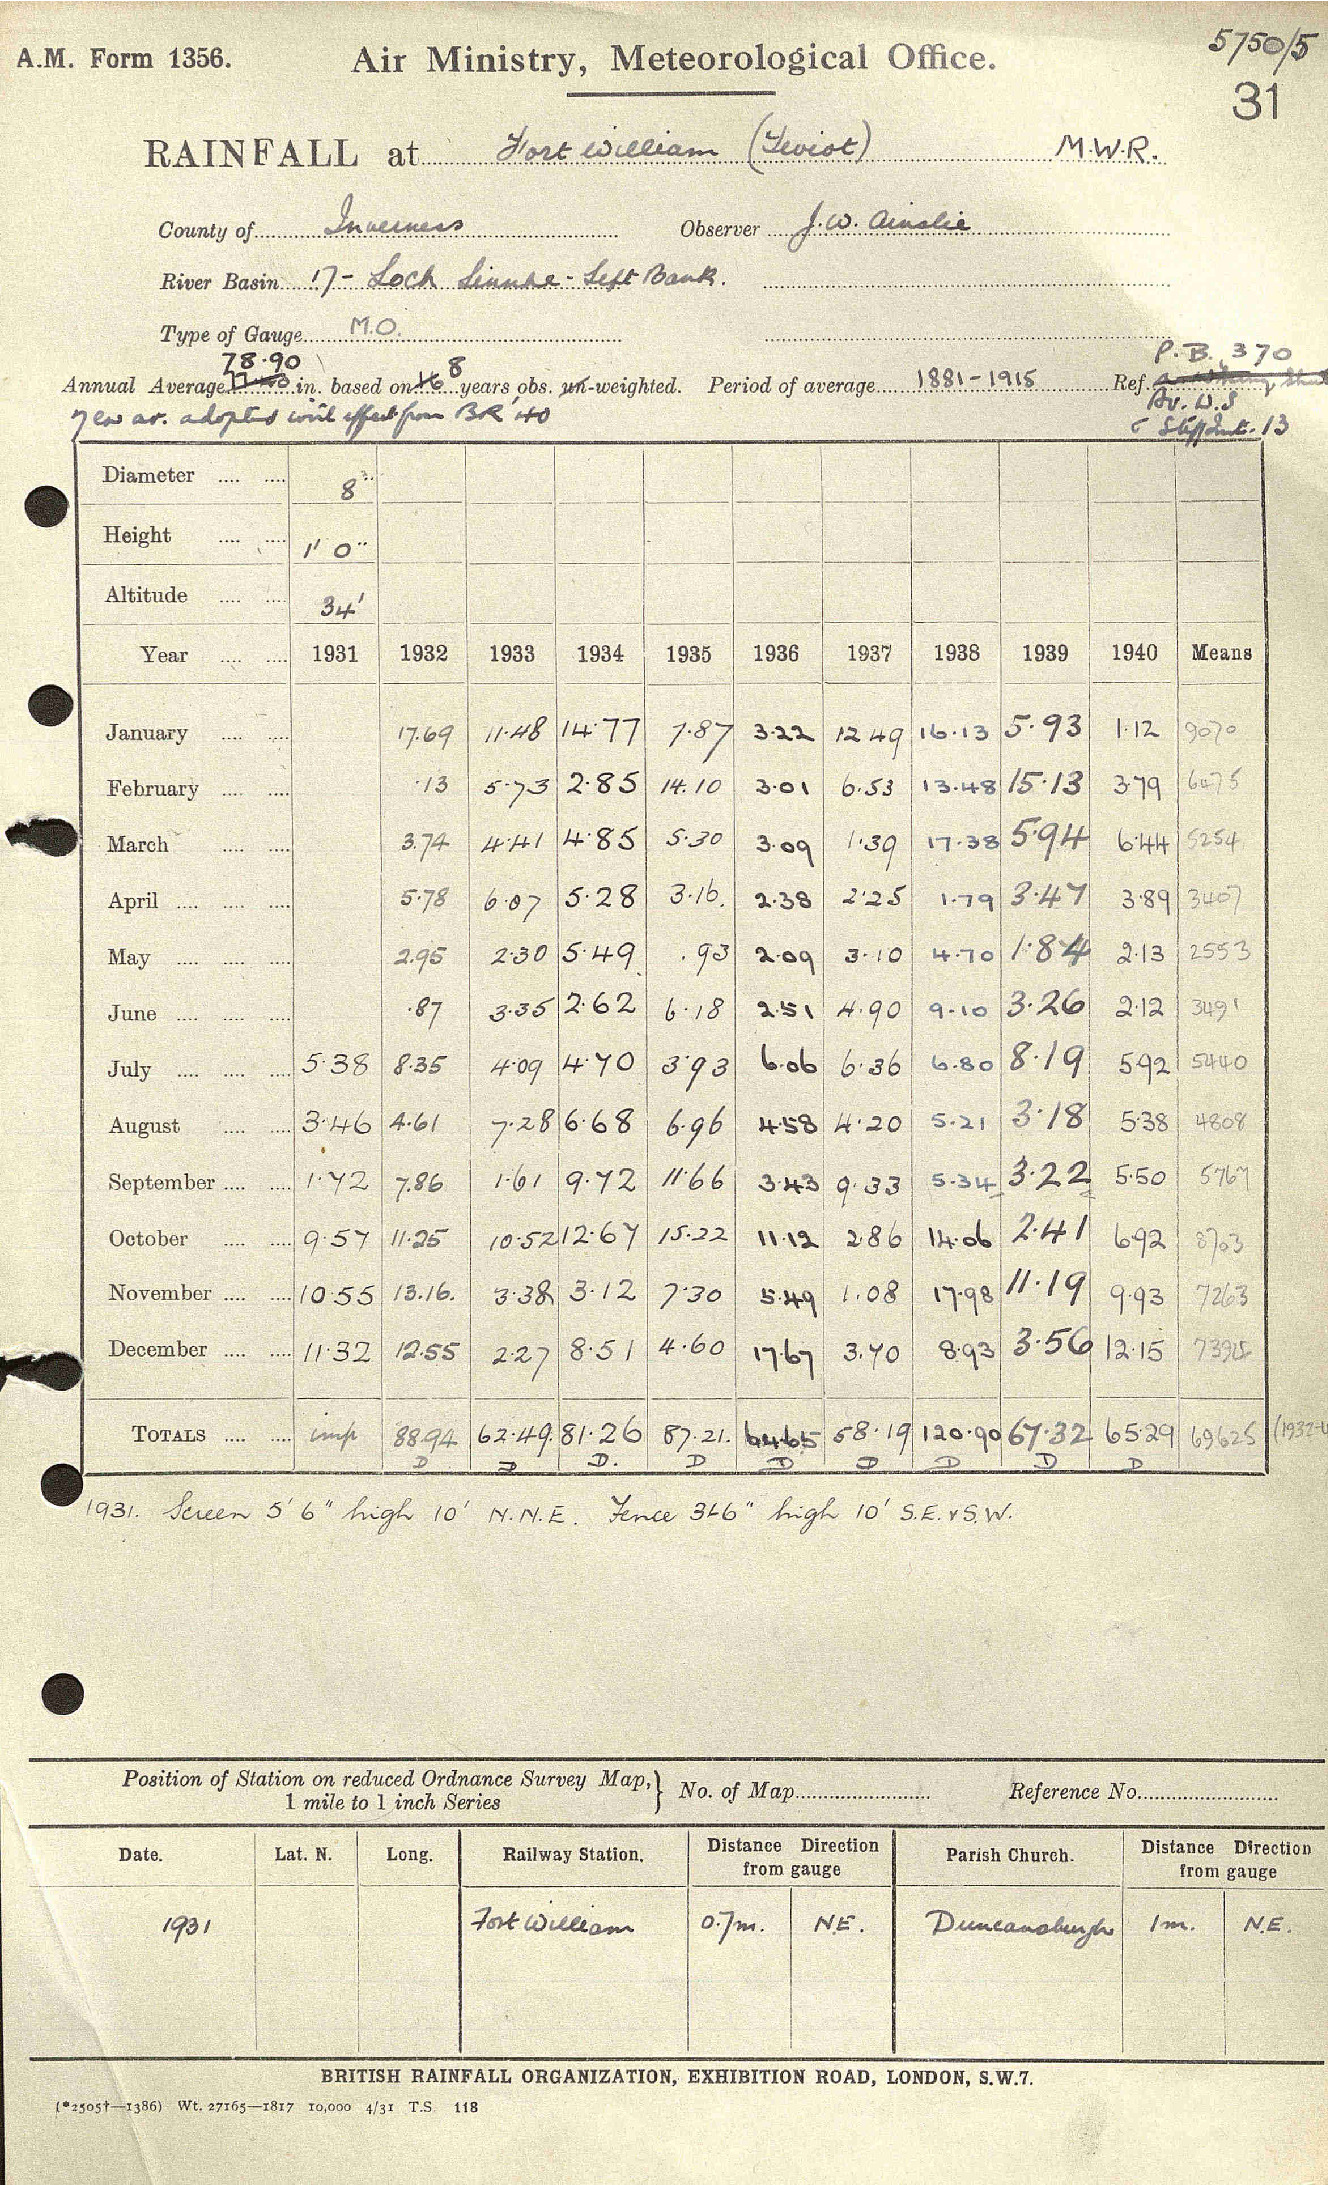 A.M. Form 1356. Air Ministry, Meteorological Office. 5750/5
31
RAINFALL at Fort William (Teviot) M.W.R.
County of Inverness Observer J.W. Ainslie
River Basin 17 - Loch Linnhe - Left Bank.
Type of Gauge M.O.
78.90 8 P.B. 370
Annual Average in. based on 16 years obs. un-weighted. Period of average 1881-1915 Ref.
new av. adopted with effect from BR '40 Av. W.S
13
Diameter .... .... 8"
Height .... .... 1' 0"
Altitude .... .... 34'
Year .... .... 1931 1932 1933 1934 1935 1936 1937 1938 1939 1940 Means
January .... .... 17.69 11.48 14.77 7.87 3.22 12.49 16.13 5.93 1.12 9070
February .... .... .13 5.73 2.85 14.10 3.01 6.53 13.48 15.13 3.79 6475
March .... .... 3.74 4.41 4.85 5.30 3.09 1.39 17.38 5.94 6.44 5254
April .... .... .... 5.78 6.07 5.28 3.16. 2.38 2.25 1.79 3.47 3.89 3407
May .... .... .... 2.95 2.30 5.49 .93 2.09 3.10 4.70 1.84 2.13 2553
June .... .... .... .87 3.35 2.62 6.18 2.51 4.90 9.10 3.26 2.12 3491
July .... .... .... 5.38 8.35 4.09 4.70 3.93 6.06 6.36 6.80 8.19 5.92 5440
August .... .... 3.46 4.61 7.28 6.68 6.96 4.58 4.20 5.21 3.18 5.38 4808
September .... .... 1.72 7.86 1.61 9.72 11.66 3.43 9.33 5.34 3.22 5.50 5767
October .... .... 9.57 11.25 10.52 12.67 15.22 11.12 2.86 14.06 2.41 6.92 8703
November .... .... 10.55 13.16. 3.38 3.12 7.30 5.49 1.08 17.98 11.19 9.93 7263
December .... .... 11.32 12.55 2.27 8.51 4.60 17.67 3.70 8.93 3.56 12.15
TOTALS .... .... imp 88.94 62.49. 81.26 87.21. 64.65 58.19 120.90 67.32 65.29 69625 (1932-4
D D D. D D D D D D
1931. Screen 5' 6" high 10' N.N.E. Fence 3'6" high 10' S.E. & S.W.
Position of Station on reduced Ordnance Survey Map, } No. of Map Reference No.
1 mile to 1 inch Series
Date. Lat. N. Long. Railway Station. Distance Direction from gauge Parish Church. Distance Direction from gauge
1931 Fort William 0.7m. N.E. Duncansburgh 1m. N.E.
BRITISH RAINFALL ORGANIZATION, EXHIBITION ROAD, LONDON, S.W.7.
(*2505†—1386) Wt. 27165—1817 10,000 4/31 T.S. 118